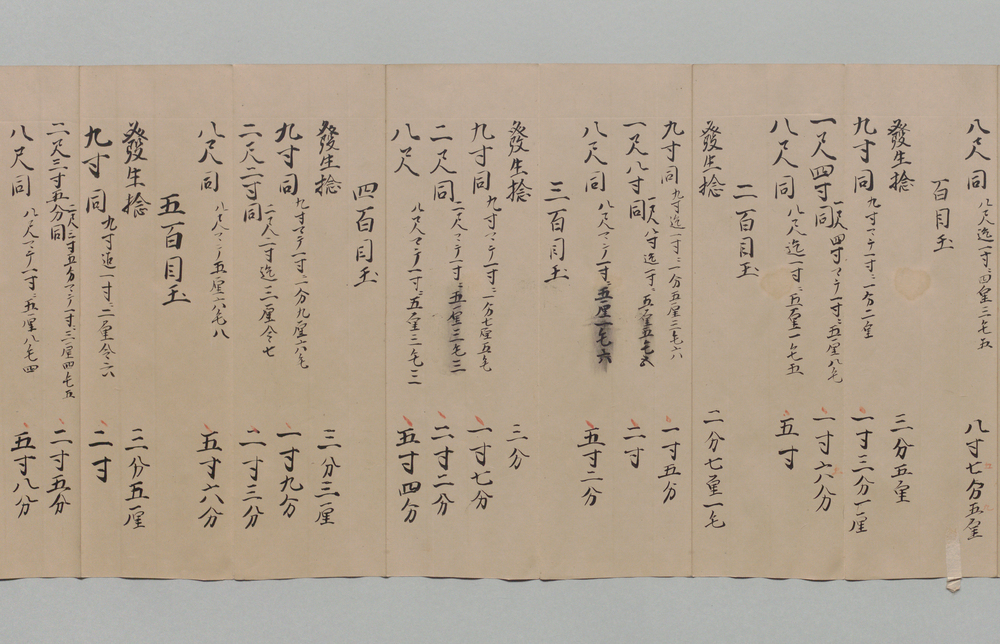 八尺同 八尺迄一寸ニ四厘三毛五 八寸七分五厘
百目玉
發生捻 三分五厘
九寸同 九寸マテ一寸ニ一分二厘 一寸三分一厘
一尺四寸同 一尺四寸マテ一寸ニ五厘八毛 一寸六分
八尺同 八尺迄一寸ニ五厘一毛五 五寸
二百目玉
發生捻 二分七厘一毛
九寸同 九寸迄一寸ニ一分五厘三毛六 一寸五分
一尺八寸同 一尺八寸迄一寸ニ五厘五毛 二寸
八尺同 八尺マテ一寸ニ五厘一毛六 五寸二分
三百目玉
發生捻 三分
九寸同 九寸マテ一寸ニ一分七厘五毛 一寸七分
二尺同 二尺マテ一寸ニ五厘三毛三 二寸二分
八尺 八尺マテ一寸ニ五厘三毛三 五寸四分
四百目玉
發生捻 三分三厘
九寸同 九寸マテ一寸ニ一分九厘六毛 一寸九分
二尺二寸同 二尺二寸迄三厘令七 二寸三分
八尺同 八尺マテ五厘六毛八 五寸六分
五百目玉
發生捻 三分五厘
九寸同 九寸迄一寸ニ二厘令六 二寸
二尺三寸五分同 二尺三寸五分マテ一寸ニ三厘四毛五 二寸五分
八尺同 八尺マテ一寸ニ五厘八毛四 五寸八分